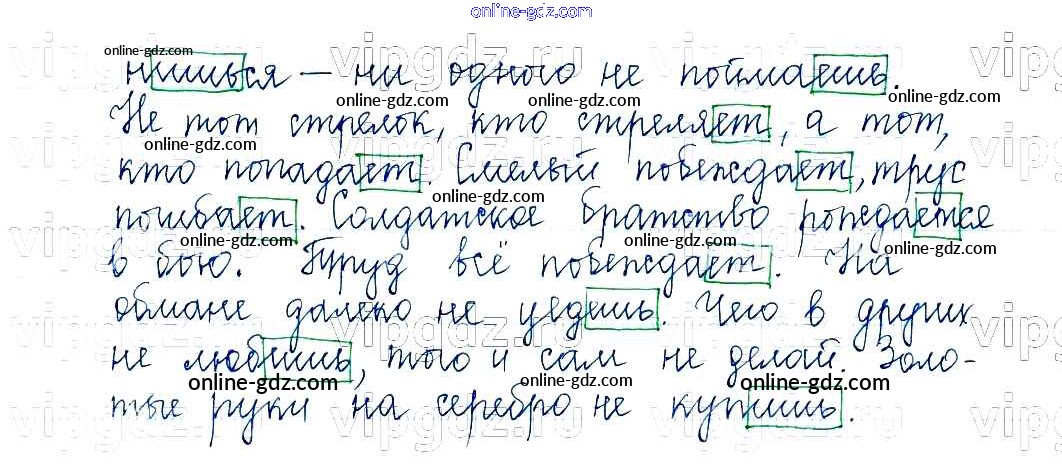 online-gdz.com
online-gdz.com
нишься — ни одного не поймаешь.
online-gdz.com online-gdz.com online-gdz.com
Не тот стрелок, кто стреляет, а тот,
online-gdz.com online-gdz.com
кто попадает. Смелый побеждает, трус
online-gdz.com
погибает. Солдатское братство рождается
online-gdz.com online-gdz.com online-gdz.com
в бою. Труд всё побеждает. На
online-gdz.com online-gdz.com
обмане далеко не уедешь. Чего в других
online-gdz.com online-gdz.com
не любишь, того и сам не делай. Золо-
online-gdz.com online-gdz.com online-gdz.com
тые руки на серебро не купишь.